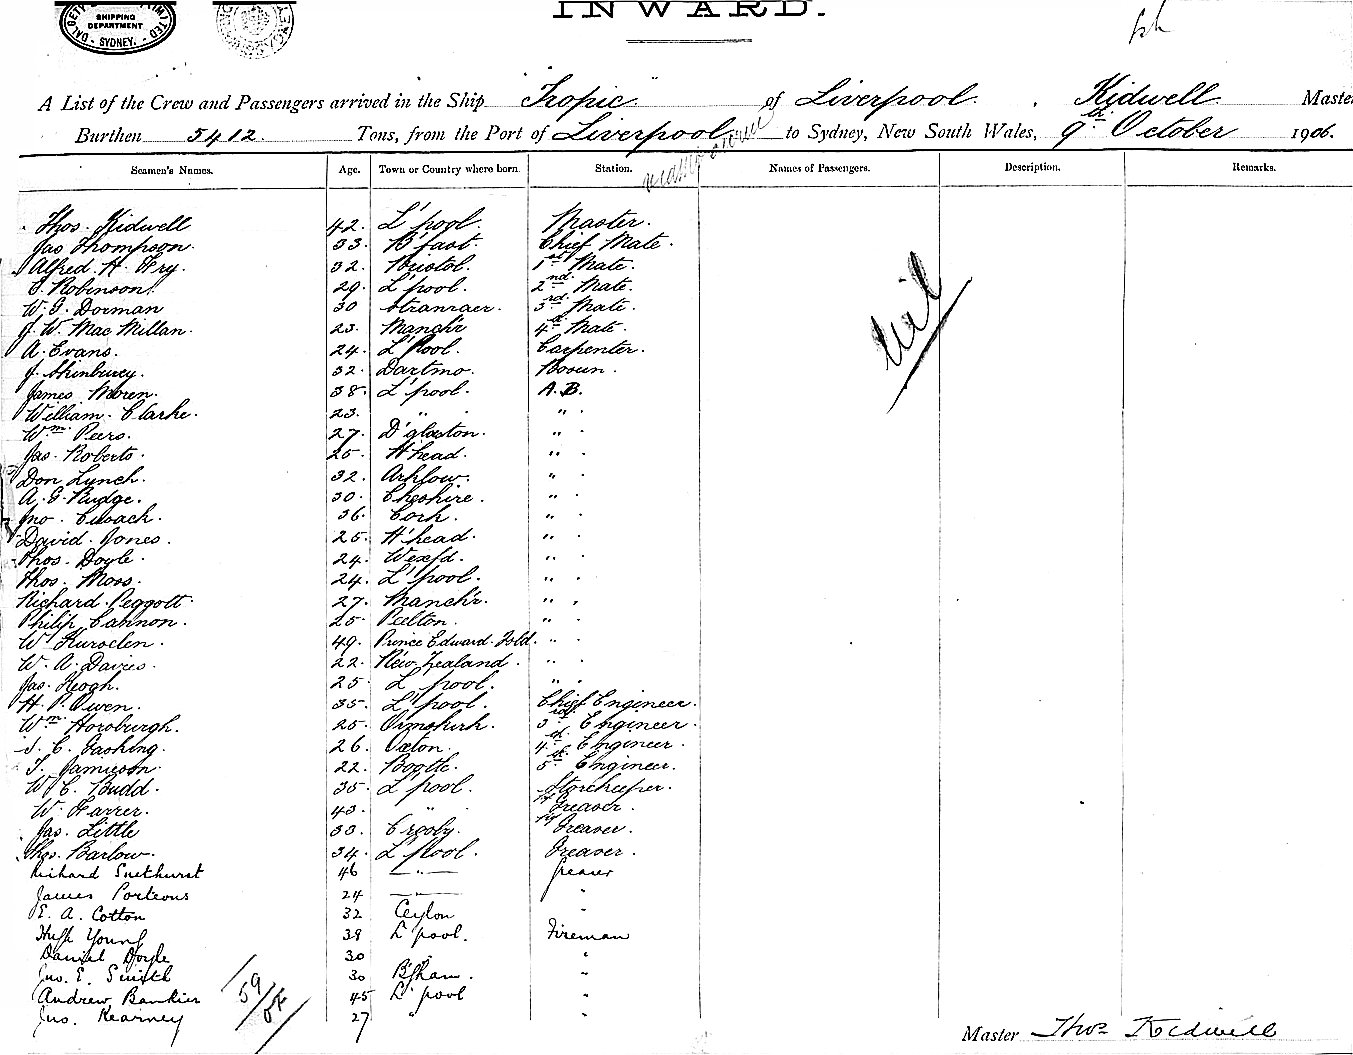 DALGETY LIMITED
SHIPPING
DEPARTMENT
SYDNEY.
INWARD.
A List of the Crew and Passengers arrived in the Ship Tropic of Liverpool. Kidwell Maste
Burthen 5412. Tons, from the Port of Liverpool to Sydney, New South Wales, 9th October 1906.
Seamen's Names. Age. Town or Country where born. Station. Names of Passengers. Description. Remarks.
Thos. Kidwell 42. L'pool. Master.
Jas Thompson. 33. B'fast. Chief Mate.
Alfred. H. Fry. 32. Bristol. 1st Mate.
Robinson. 29. L'pool. 2nd Mate.
W. G. Dorman 30 Stranraer. 3rd Mate.
J. W. Mac Millan. 23. Manch'r 4th Mate
A. Evans. 24. L'pool. Carpenter.
J. 32. Dartmo. Bosun.
James Moren. 38. L'pool. A.B.
William. Clarke. 23. " "
Wm. Peers. 27. D'glaston. "
Jas. Roberts. 25. H'head. "
Don Lynch. 32. Arklow. "
A. G. Rudge. 30. Cheshire. "
Jno. Cusack. 36. Cork. "
David. Jones. 25. H'head. "
Thos. Doyle. 24. Wexf'd. "
Thos. Moss. 24. L'pool. "
Richard. Peggott. 27. Manch'r. "
Philip Cannon. 25. Peelton. "
W 49. Prince Edward. Isld. "
W. A. Davies. 22. New Zealand. "
Jas. Keogh. 25. L'pool. "
H. P. Owen. 35. L'pool. Chief Engineer.
Wm. Horsburgh. 25. Ormskirk. 3rd Engineer.
C. 26. Oxton. 4th Engineer.
Jamieson. 22. Bootle. 5th Engineer.
W. C. Budd. 35. L'pool. Storekeeper.
W. Farrer. 43. " Greaser.
Jas. Little 33. Crosby. Greaser.
Thos. Barlow. 34. L'pool. Greaser.
Richard Smethurst 46 " Greaser
James Porteous 24 "
E. A. Cotton 32 Ceylon "
Hugh Young 38 L'pool. Fireman
Daniel Doyle 30 "
Jno. E. Smith 30 B'ham. "
Andrew Bankier 45 L'pool "
Jno. Kearney 27 " "
Nil
Master Thos Kidwell